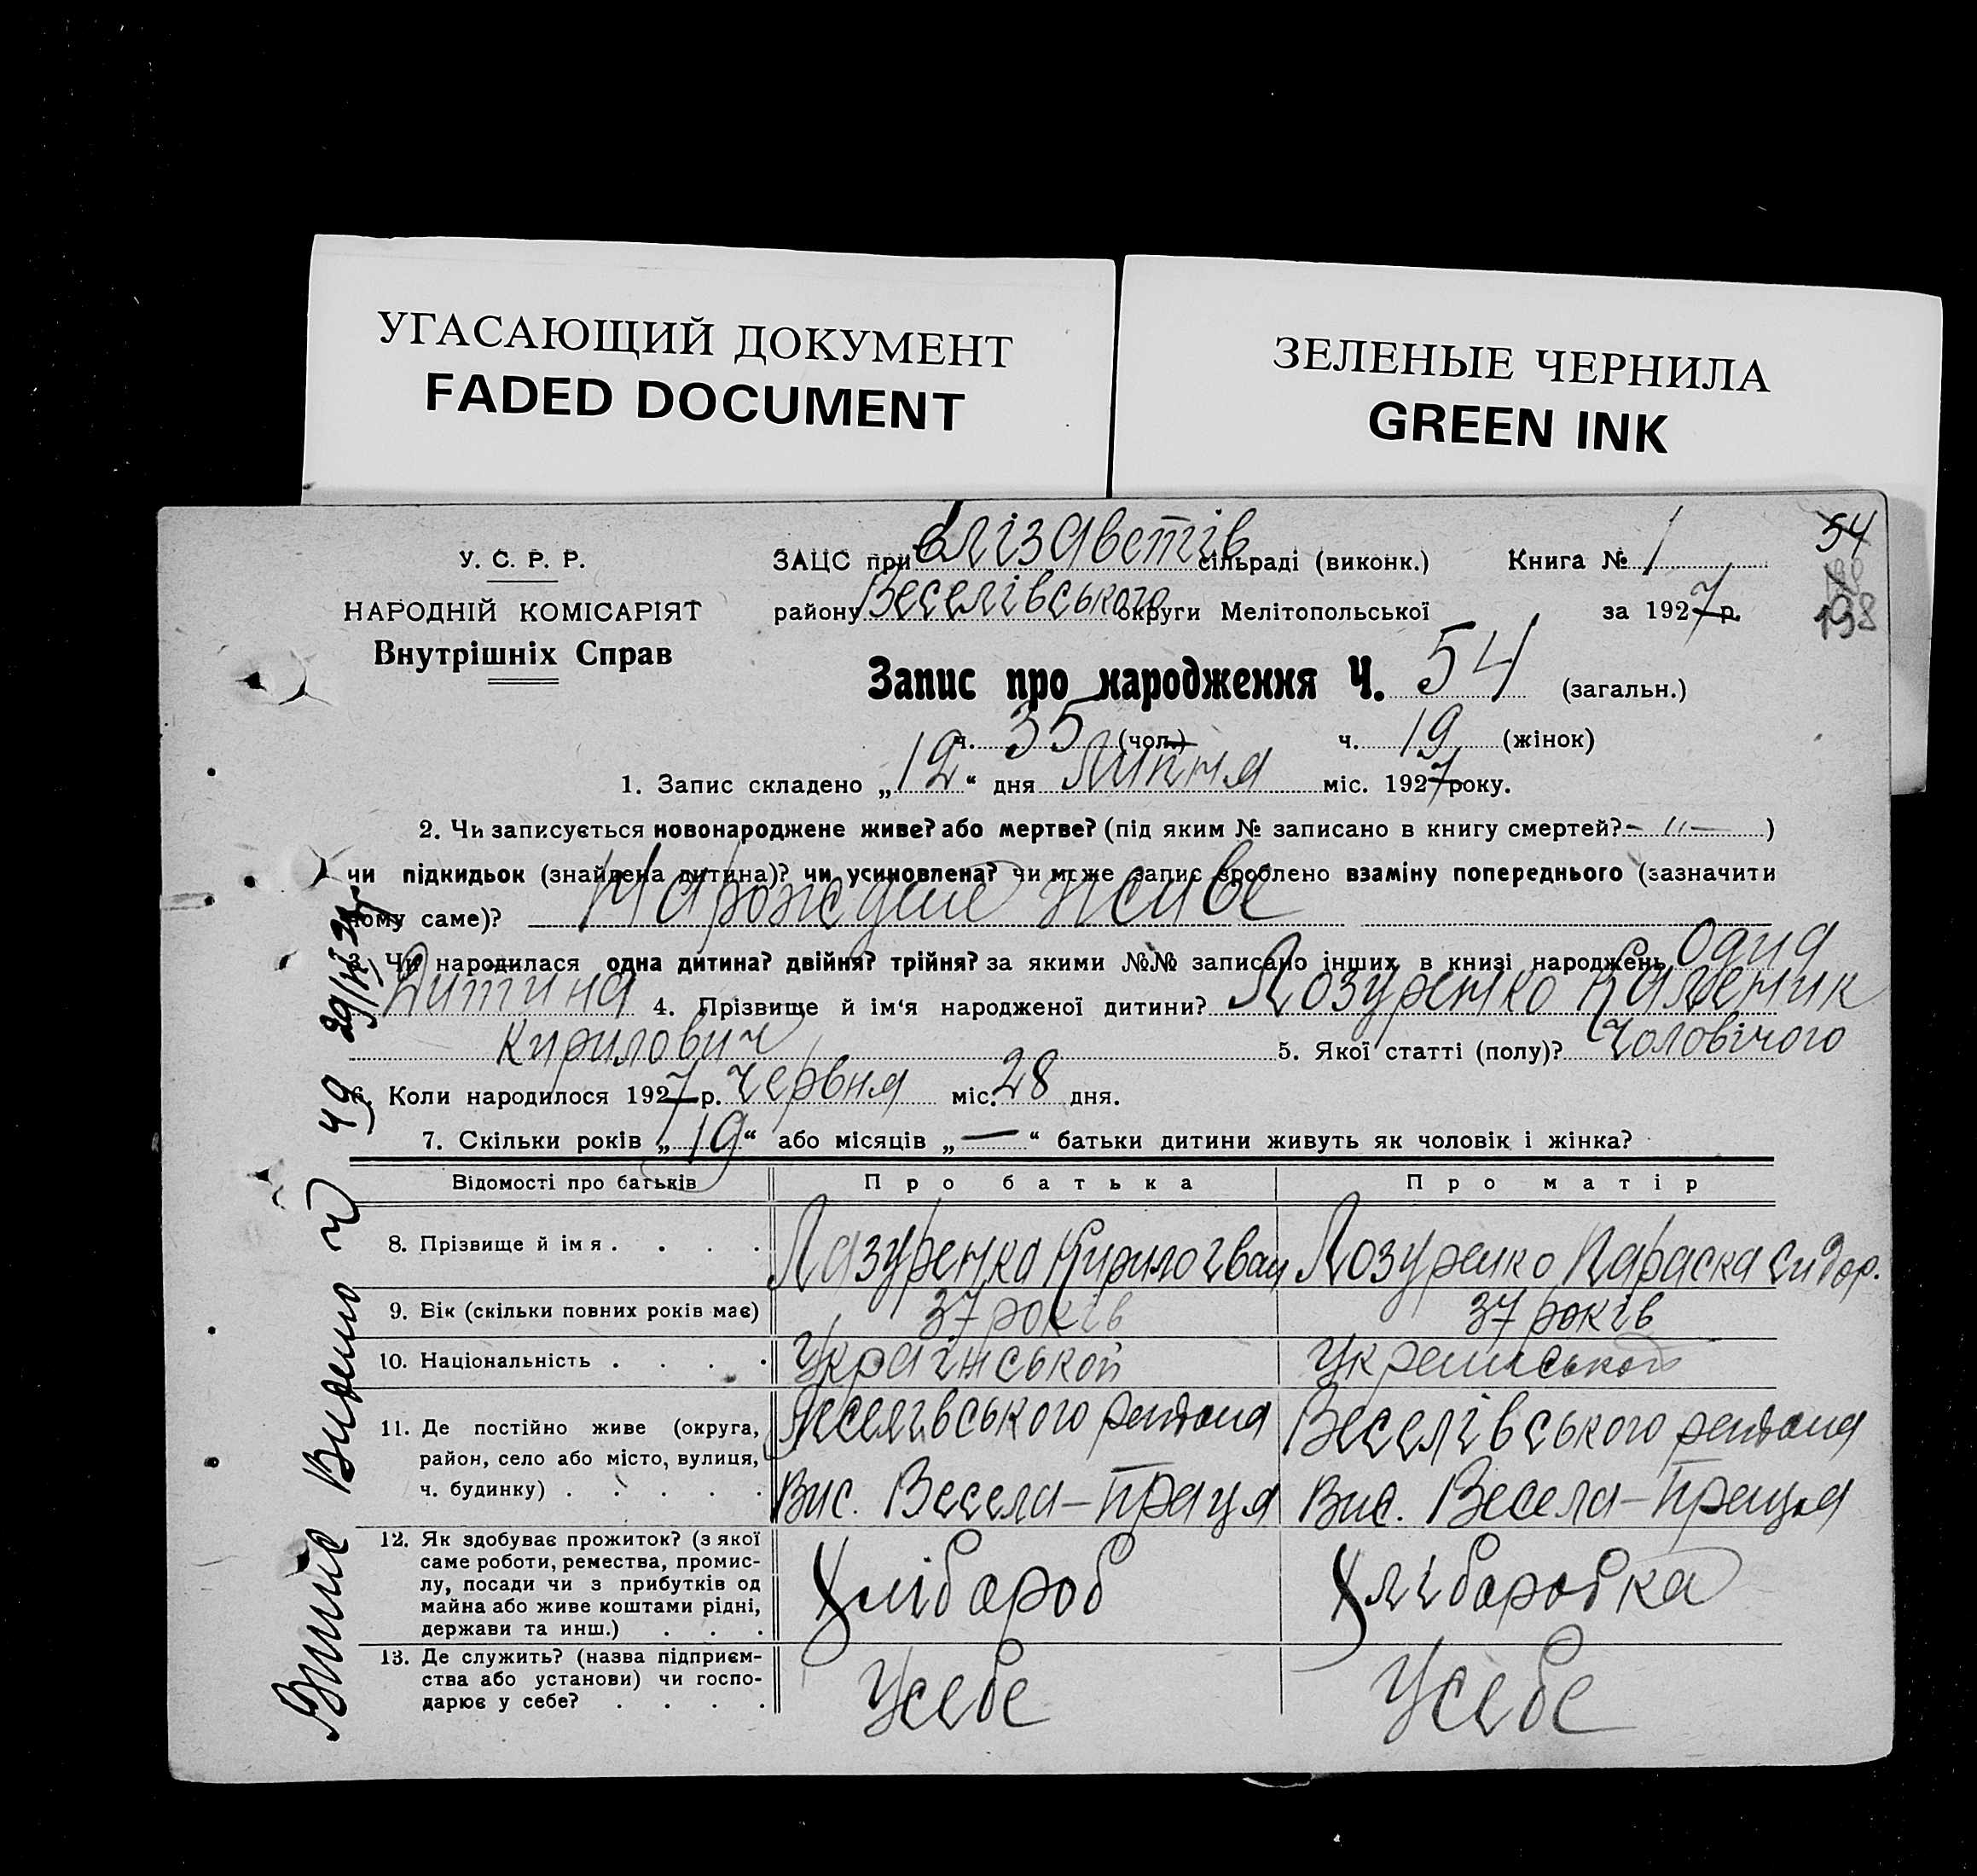 УГАСАЮЩИЙ ДОКУМЕНТ
FADED DOCUMENT
ЗЕЛЕНЫЕ ЧЕРНИЛА
GREEN INK
54
198
У. С. Р. Р.
НАРОДНІЙ КОМІСАРІЯТ
Внутрішніх Справ
ЗАЦС при Єлізаветів сільраді (виконк.) Книга № 1
району Веселівського округи Мелітопольської за 1927 р.
Запис про народження Ч. 54 (загальн.)
ч. 35 (чол.) ч. 19 (жінок)
1. Запис складено „12“ дня Липня міс. 1927 року.
2. Чи записується новонароджене живе? або мертве? (під яким № записано в книгу смертей? — „ — )
чи підкидьок (знайдена дитина)? чи усиновлена? чи може запис зроблено взаміну попереднього (зазначити
чому саме)? Нарожденe живе
3. Чи народилася одна дитина? двійня? трійня? за якими №№ записано інших в книзі народжень Одна
Дитина 4. Прізвище й ім‘я народженої дитини? Лозуренко Каленик
Кирилович 5. Якої статті (полу)? Чоловічого
6. Коли народилося 1927 р. Червня міс. 28 дня.
7. Скільки років „19“ або місяців „—“ батьки дитини живуть як чоловік і жінка?
Відомості про батьків Про батька Про матір
8. Прізвище й імя . . . . Лазуренка Кирило Іван Лозуренко Параска Сидор.
9. Вік (скільки повних років має) 37 років 37 років
10. Національність . . . . Української Української
11. Де постійно живе (округа, район, село або місто, вулиця, ч. будинку) . . . . .
Веселівського району Веселівського району
Вис. Весела-Праця Вис. Весела-Праця
12. Як здобуває прожиток? (з якої саме роботи, ремества, промислу, посади чи з прибутків од майна або живе коштами рідні, держави та инш.) . . .
Хлібороб Хліборобка
13. Де служить? (назва підприємства або установи) чи господарює у себе? . . . .
Усебе Усебе
Видано ч 49